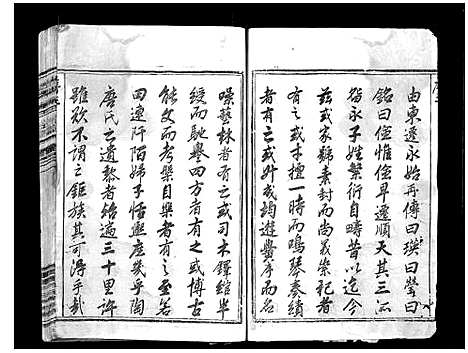 由東遷永始再傳曰瑛曰瑩曰
銘曰侄惟侄早達順天其三派
留永子姓繁衍自疇昔以迄今
茲或家號素封而尚義崇祀者
有之或才擅一時而鳴琴奏績
者有之或外或均遊黌序而名
噪藝林者有之或司木鐸綰半
綬而馳譽四方者有之或博古
能文而考槃自樂者有之至若
田連阡陌婦子恬熙庶幾乎陶
唐氏之遺黎者綿遍三十里許
雖欲不謂之鉅族其可得乎哉